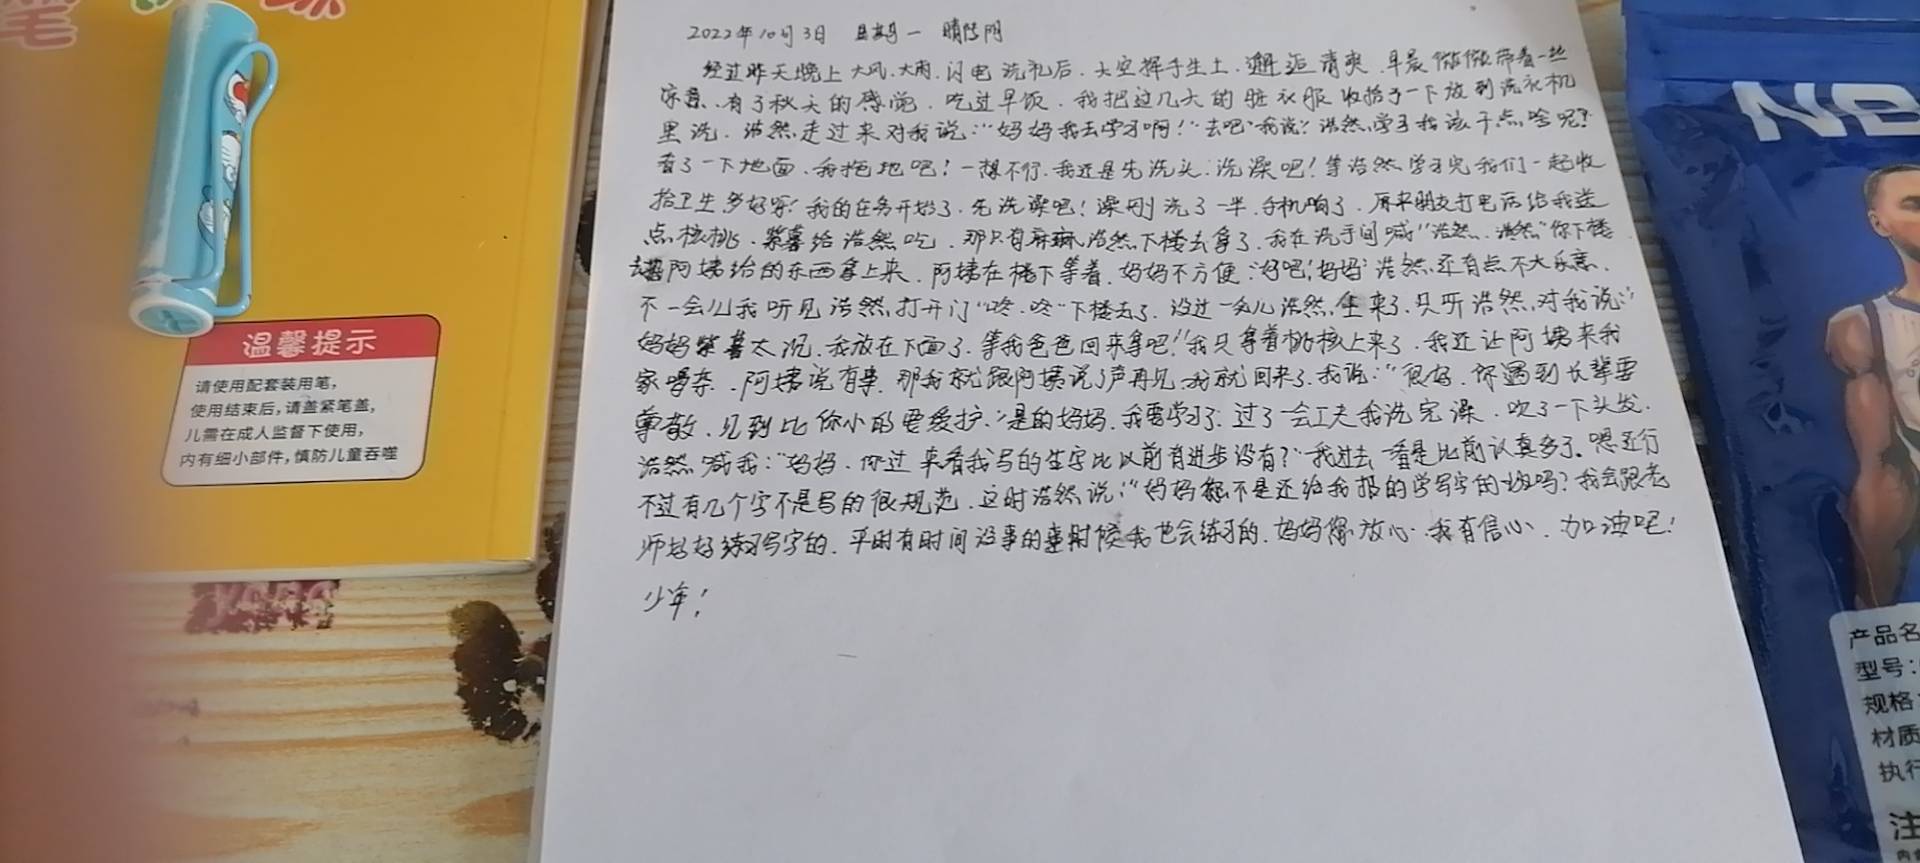 笔
温馨提示
请使用配套装用笔，
使用结束后，请盖紧笔盖，
儿需在成人监督下使用，
内有细小部件，慎防儿童吞噬
2022年10月3日 星期一 晴转阴
经过昨天晚上大风、大雨、闪电洗礼后、天空挥手生土、邂逅清爽、早晨微微带着一丝
凉意、有了秋天的感觉、吃过早饭、我把过几天的脏衣服收拾了一下放到洗衣机
里洗、浩然走过来对我说："妈妈我去学习啊！"去吧"我说：浩然学习我该干点啥呢？
看了一下地面、我拖地吧！一想不行、我还是先洗头、洗澡吧！等浩然学习完我们一起收
拾卫生多好呀！我的任务开始了、先洗澡吧！澡刚洗了一半、手机响了、原来朋友打电话给我送
点核桃、紫薯给浩然吃、那只有麻烦浩然下楼去拿了、我在洗手间喊"浩然、浩然"你下楼
去把阿姨给的东西拿上来、阿姨在楼下等着、妈妈不方便："好吧！妈妈"浩然还有点不太乐意、
不一会儿我听见浩然打开门"咚、咚"下楼去了、没过一会儿浩然上来了、只听浩然对我说："
妈妈紫薯太沉、我放在下面了、等我爸爸回来拿吧！"我只拿着桃核上来了、我还让阿姨来我
家、阿姨说有事、那我就跟阿姨说了声再见、我就回来了、我说："很好、你遇到长辈要
尊敬、见到比你小的要爱护、"是的妈妈、我要学习了、过了一会工夫我洗完澡、吹了一下头发、
浩然喊我："妈妈、你过来看我写的生字比以前有进步没有？"我过去一看是比前认真多了。嗯还行
不过有几个字不是写的很规范、这时浩然说："妈妈您不是还给我报的学写字的班吗？我会跟老
师好好练习写字的、平时有时间没事的时候我也会练习的、妈妈你放心、我有信心、加油吧！
少年！
NB
产品名
型号：
规格
材质
执行
注